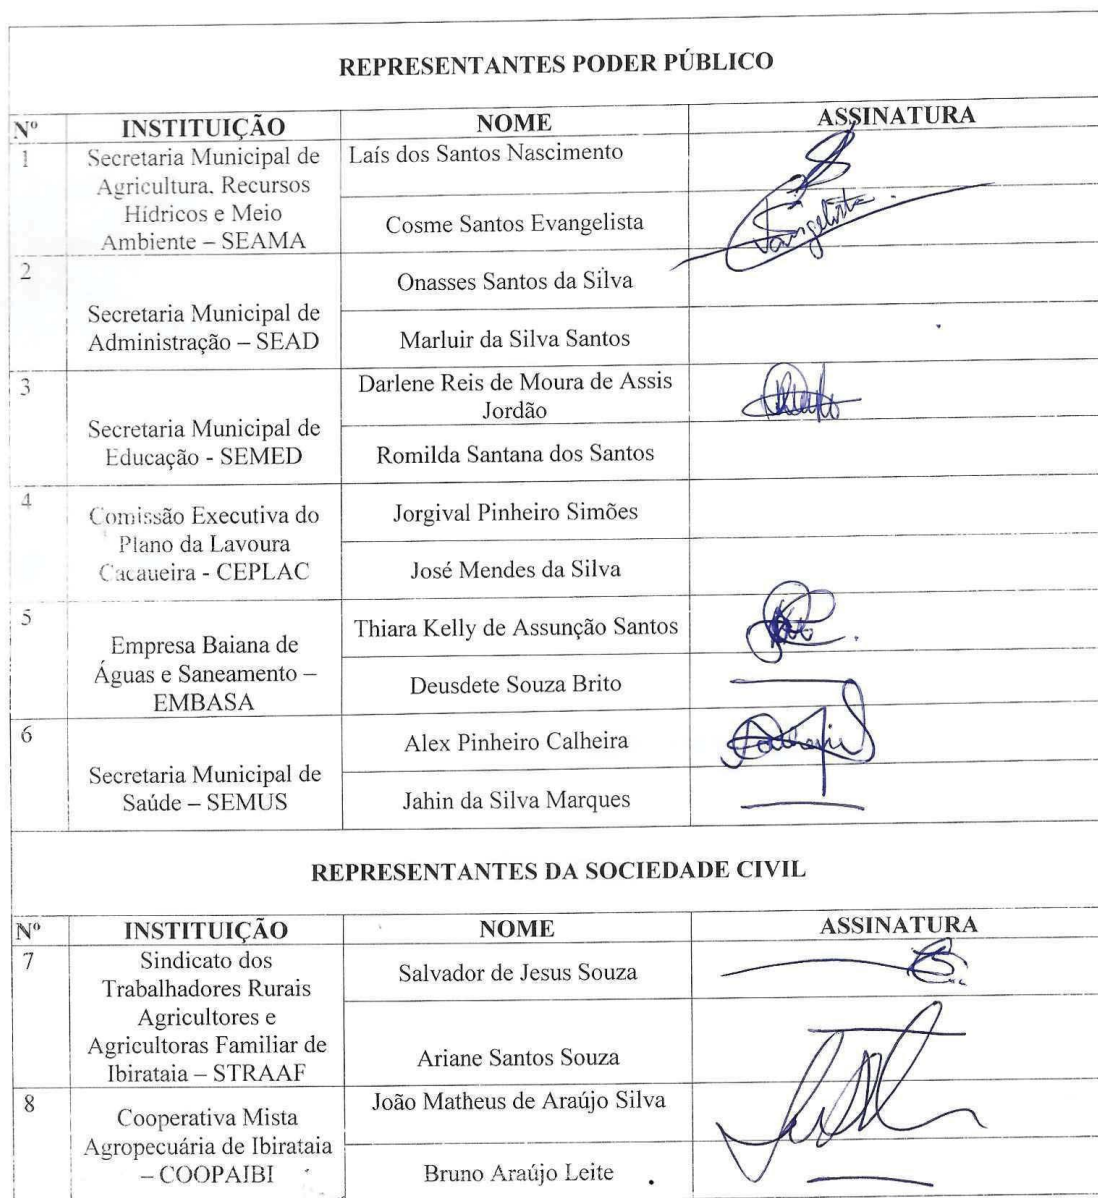 REPRESENTANTES PODER PÚBLICO
Nº INSTITUIÇÃO NOME ASSINATURA
1 Secretaria Municipal de Agricultura, Recursos Hídricos e Meio Ambiente – SEAMA
Laís dos Santos Nascimento
Cosme Santos Evangelista
Evangelista
2 Secretaria Municipal de
Administração – SEAD
Onasses Santos da Silva
Marluir da Silva Santos
3 Secretaria Municipal de
Educação - SEMED
Darlene Reis de Moura de Assis
Jordão
Romilda Santana dos Santos
4 Comissão Executiva do
Plano da Lavoura
Cacaueira - CEPLAC
Jorgival Pinheiro Simões
José Mendes da Silva
5 Empresa Baiana de
Águas e Saneamento –
EMBASA
Thiara Kelly de Assunção Santos
Deusdete Souza Brito
6 Secretaria Municipal de
Saúde – SEMUS
Alex Pinheiro Calheira
Jahin da Silva Marques
REPRESENTANTES DA SOCIEDADE CIVIL
Nº INSTITUIÇÃO NOME ASSINATURA
7 Sindicato dos
Trabalhadores Rurais
Agricultores e
Agricultoras Familiar de
Ibirataia – STRAAF
Salvador de Jesus Souza
Ariane Santos Souza
8 Cooperativa Mista
Agropecuária de Ibirataia
– COOPAIBI
João Matheus de Araújo Silva
Bruno Araújo Leite